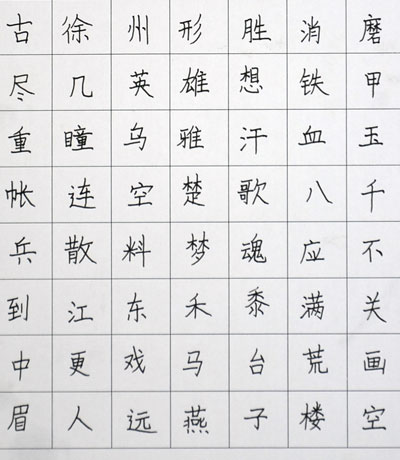 古徐州形胜消磨
尽几英雄想铁甲
重瞳乌雅汗血玉
帐连空楚歌八千
兵散料梦魂应不
到江东禾黍满关
中更戏马台荒画
眉人远燕子楼空